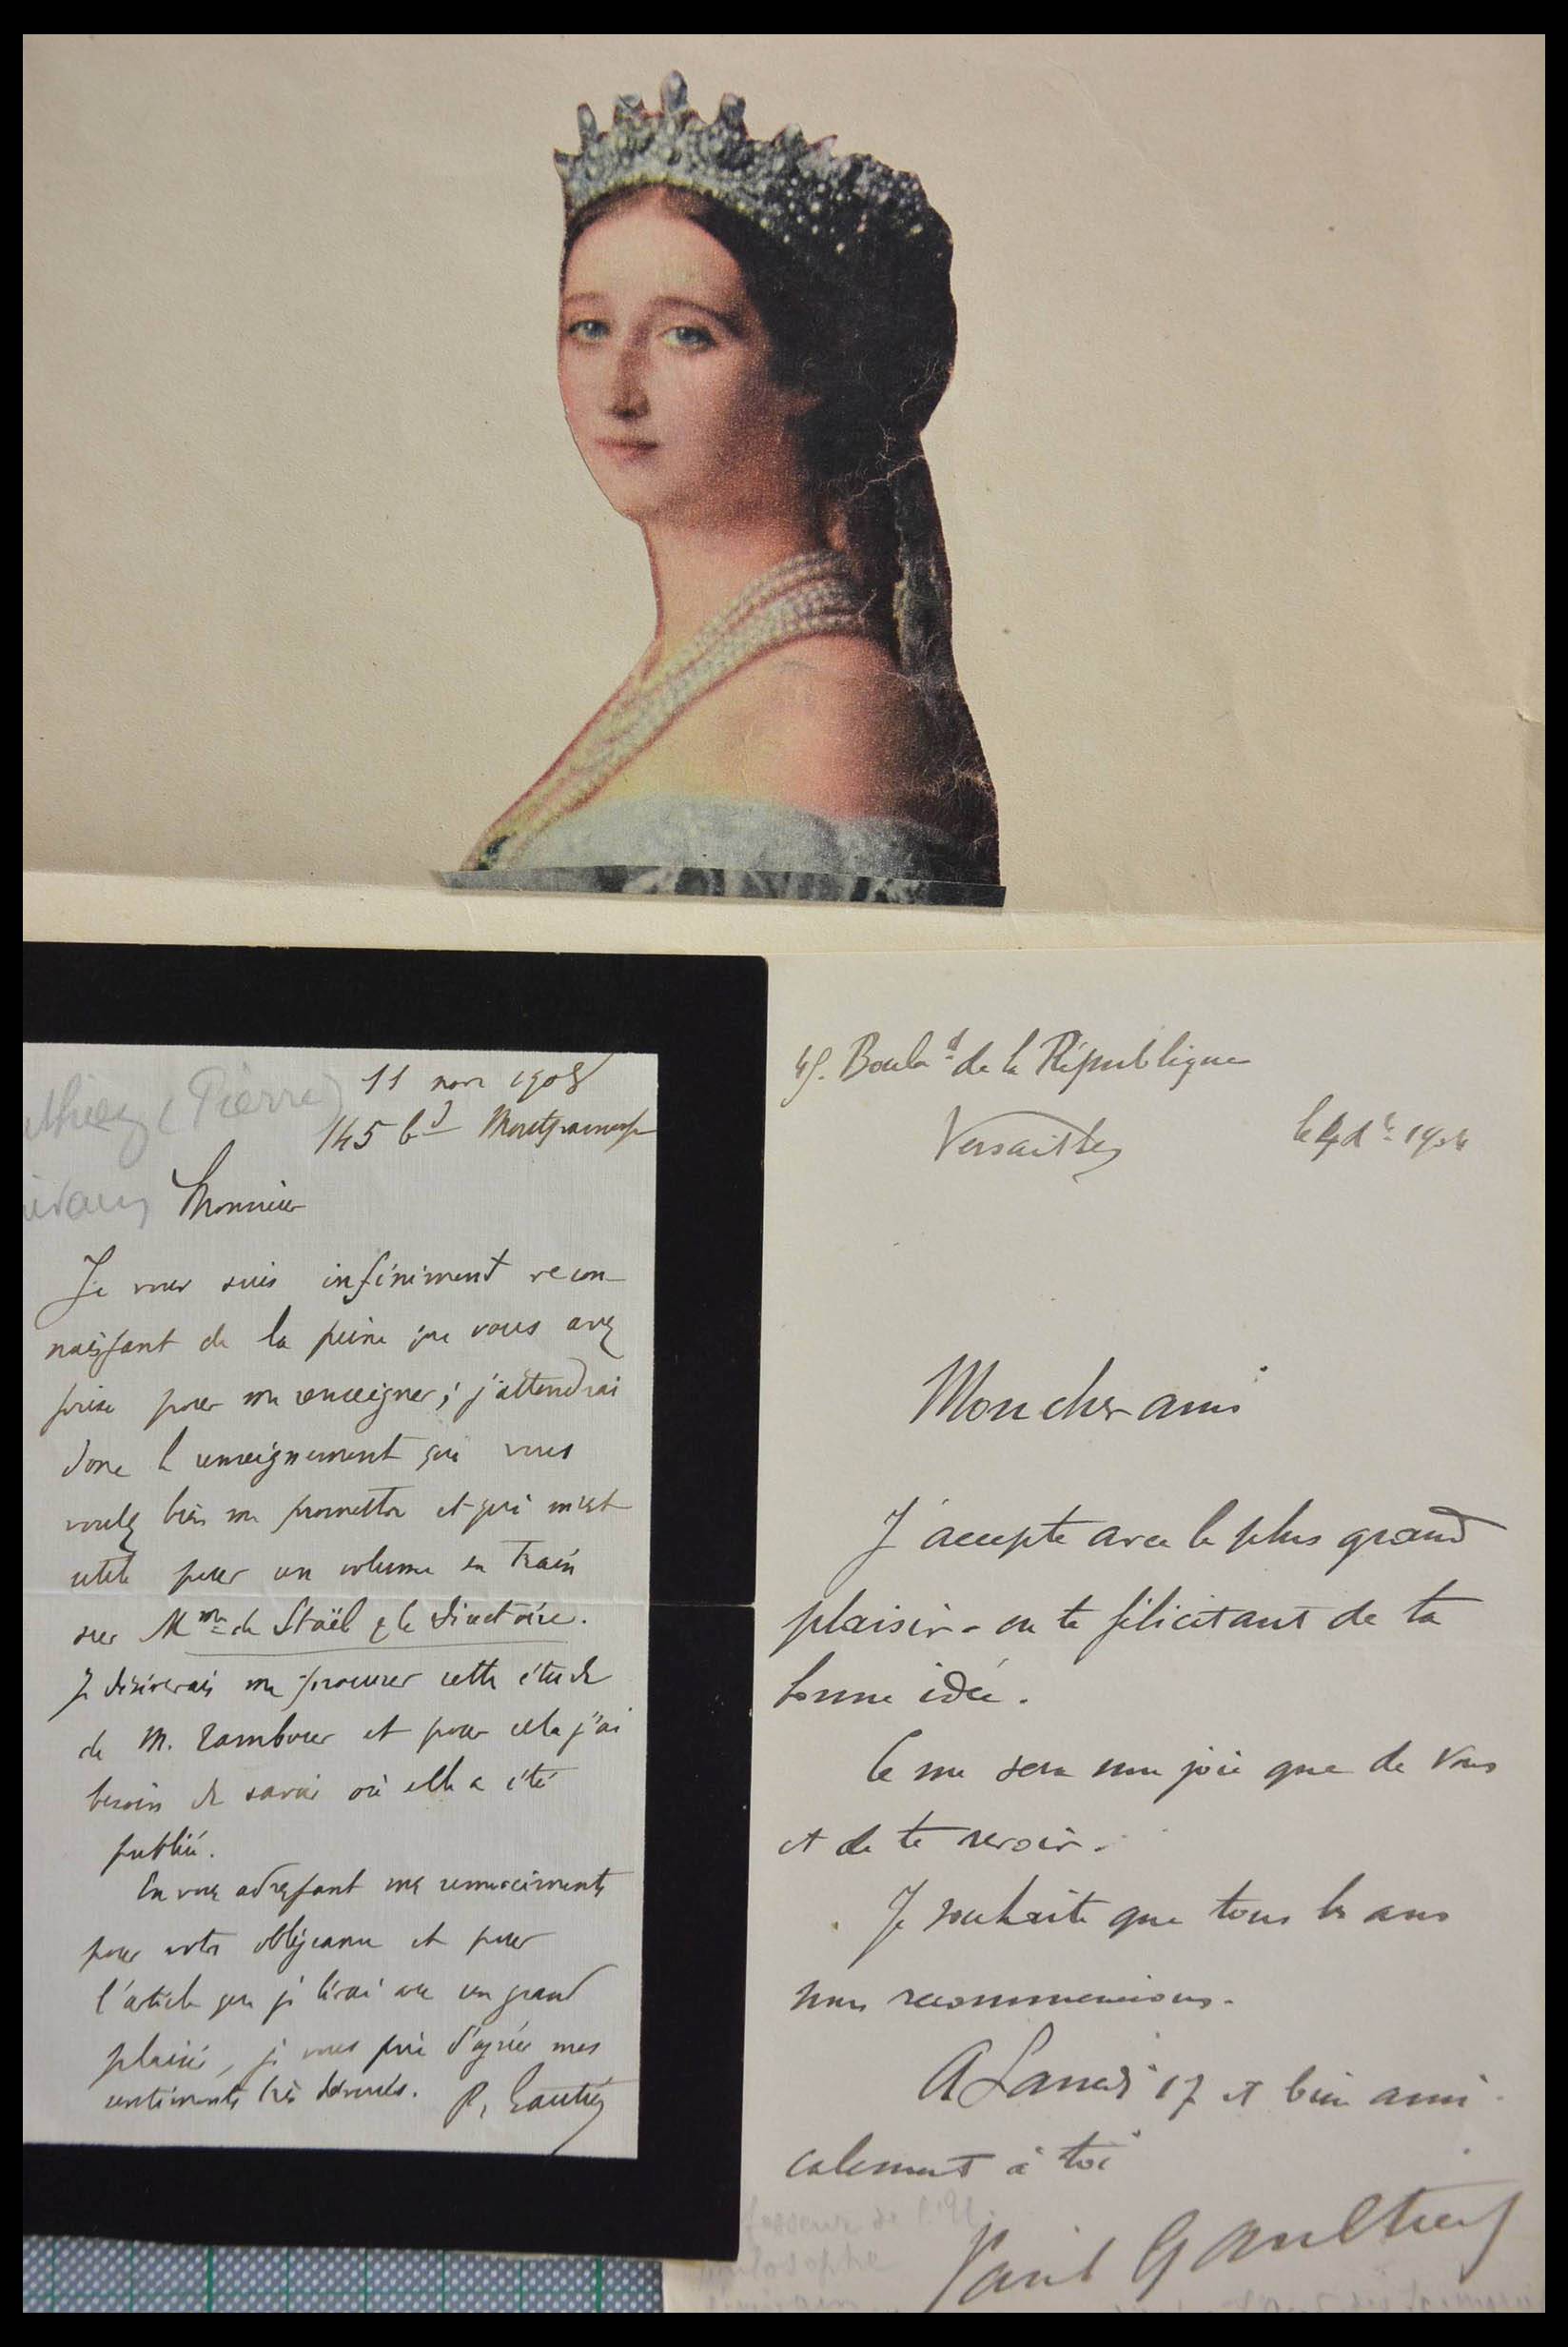 11 nov 1908
145 bd Montparnasse
(Pierre)
Monsieur
Je vous suis infiniment recon-
naissant de la peine que vous avez
prise pour me renseigner; j'attendrai
donc le renseignement que vous
voulez bien me promettre et qui m'est
utile pour un volume en train
sur Mme de Staël & le Directoire.
Je désirerais me procurer cette étude
de M. Tambour et pour cela j'ai
besoin de savoir où elle a été
publiée.
En vous adressant mes remerciements
pour votre obligeance et pour
l'article que je lirai avec un grand
plaisir, je vous prie d'agréer mes
sentiments très dévoués. P. Gautier
45. Boulad de la République
Versailles
le 4 de 1904
Mon cher ami
J'accepte avec le plus grand
plaisir - en te félicitant de ta
bonne idée.
Ce me sera une joie que de vous
et de te revoir.
Je souhaite que tous les ans
nous recommencions.
A Lundi 17 et bien ami-
calement à toi
Paul Gaultier